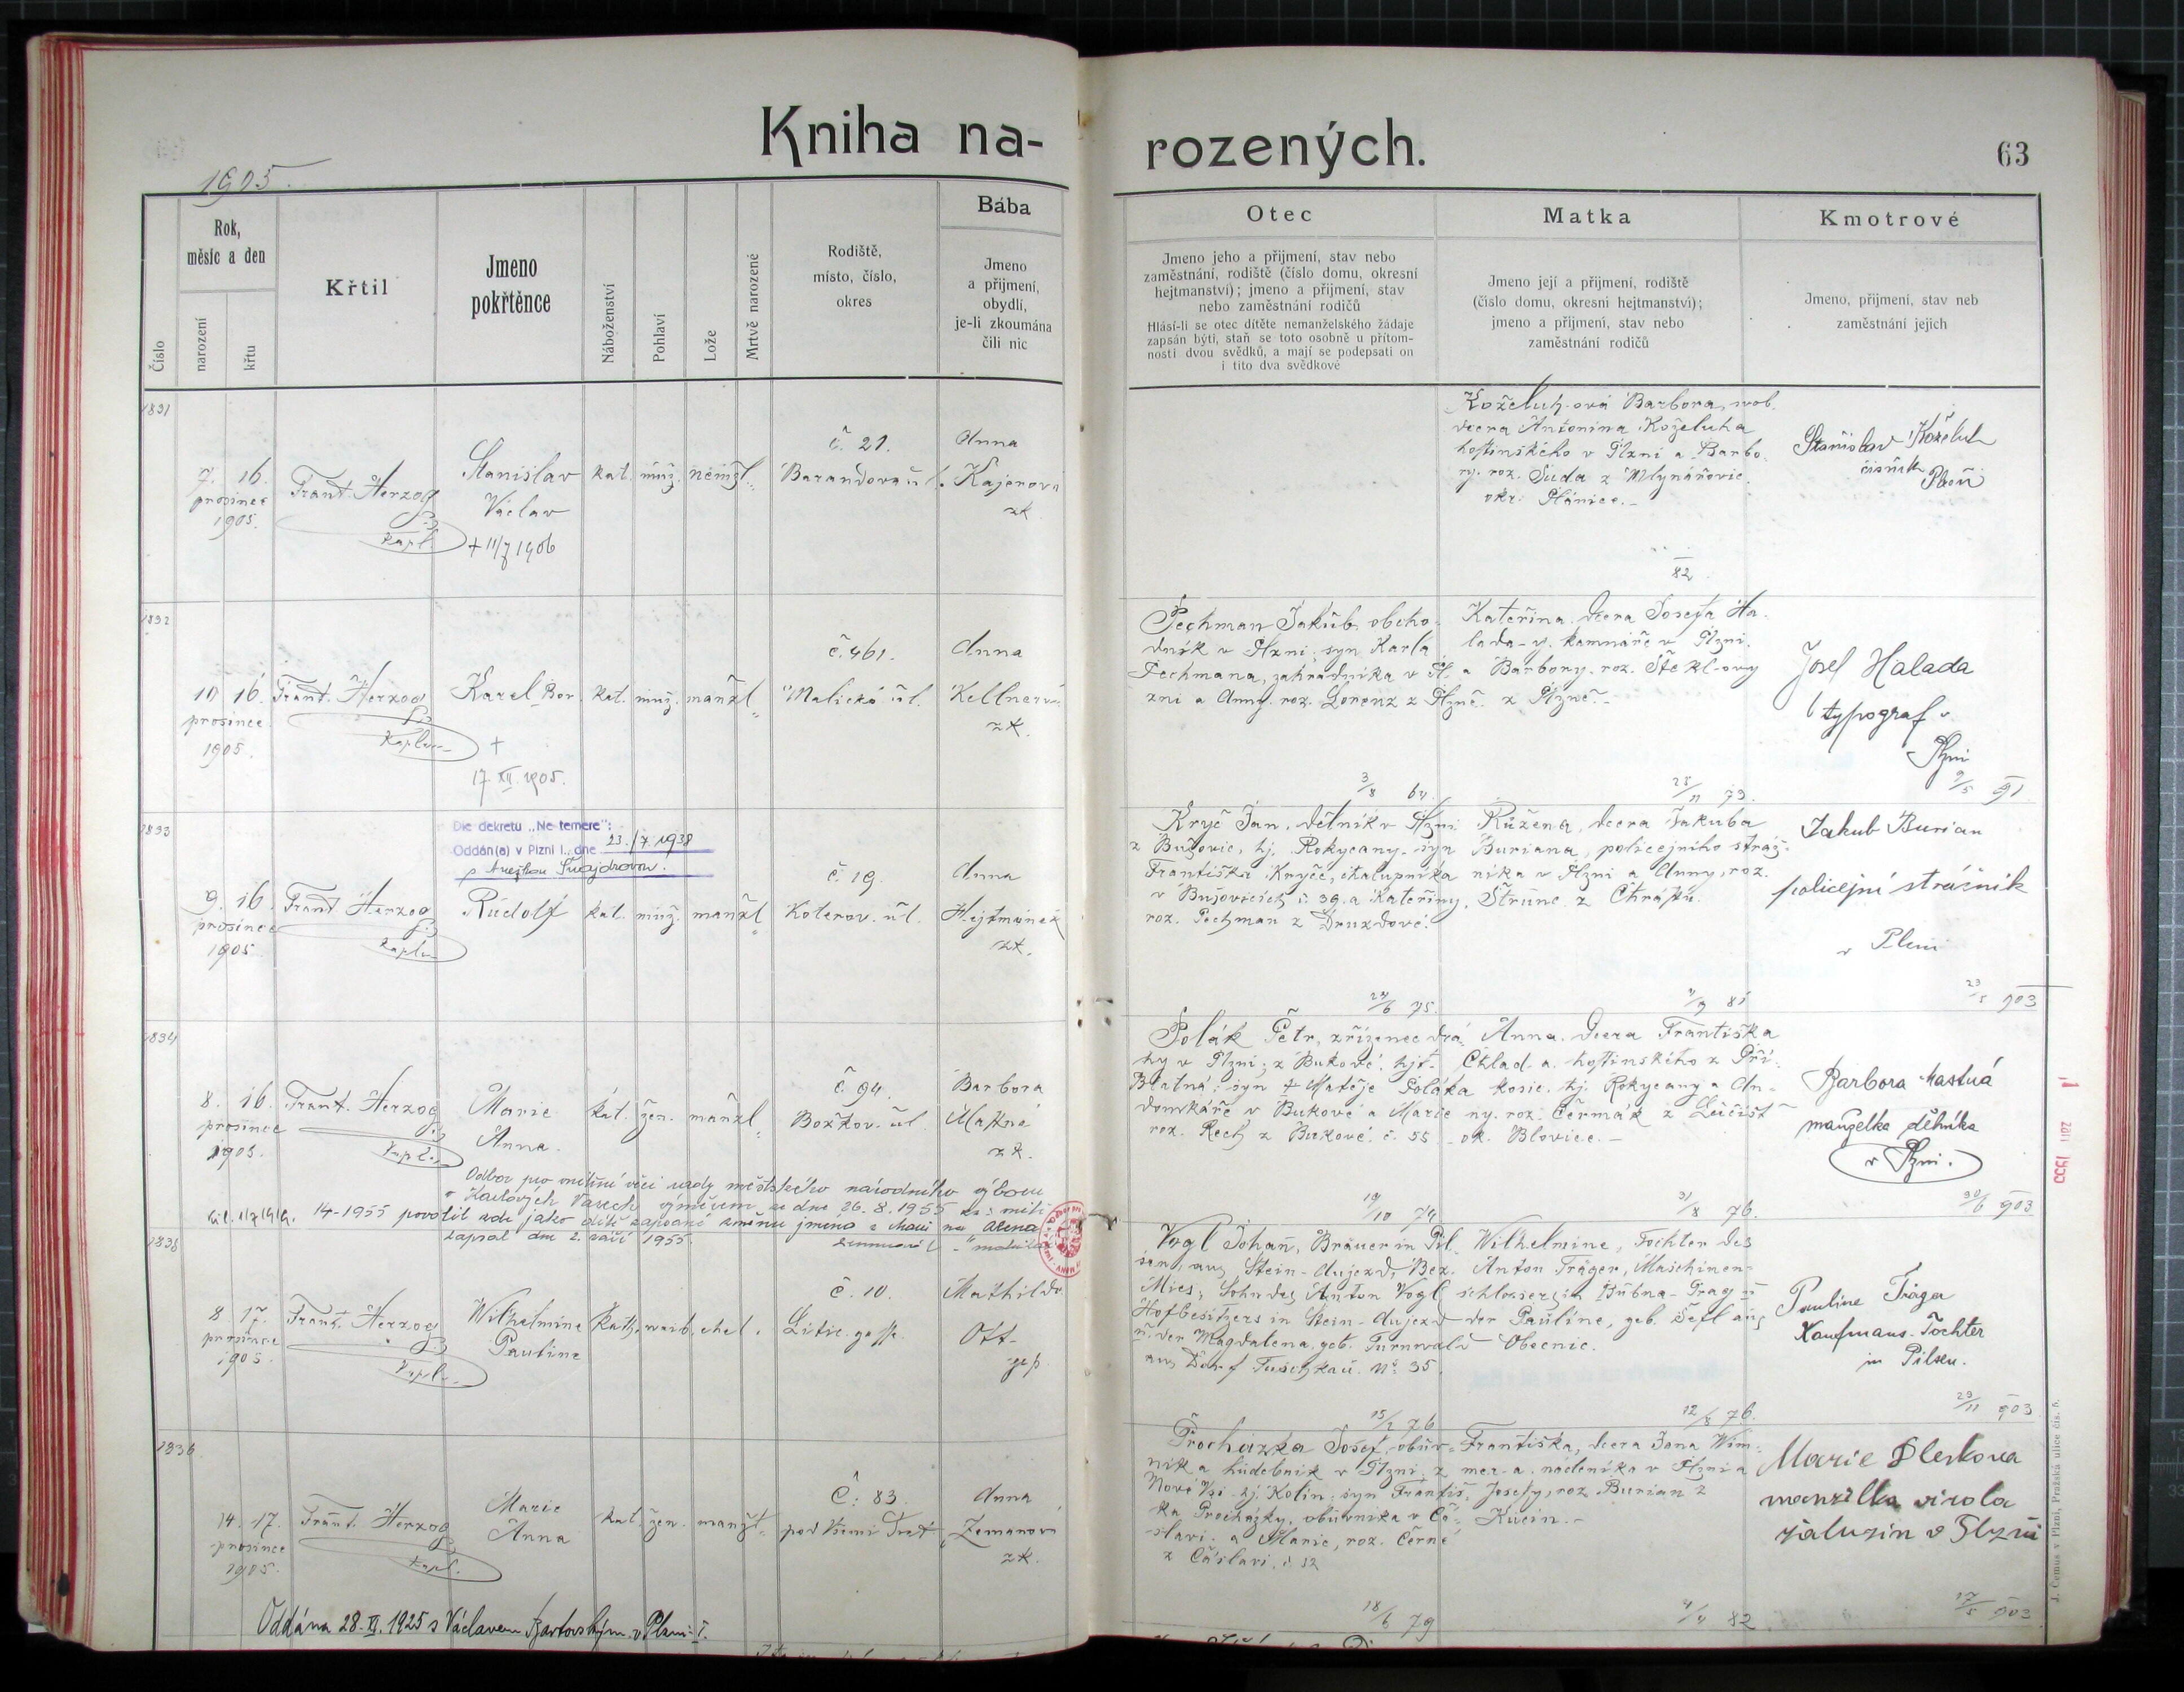 Kniha na-
rozených.
63
1905.
Číslo
Rok,
měsíc a den
narození
křtu
Křtil
Jmeno
pokřtěnce
Náboženství
Pohlaví
Lože
Mrtvě narozené
Rodiště,
místo, číslo,
okres
Bába
Jmeno
a přijmení,
obydlí,
je-li zkoumána
čili nic
Otec
Jmeno jeho a přijmení, stav nebo
zaměstnání, rodiště (číslo domu, okresní
hejtmanství); jmeno a přijmení, stav
nebo zaměstnání rodičů
Hlásí-li se otec dítěte nemanželského žádaje
zapsán býti, staň se toto osobně u přítom-
nosti dvou svědků, a mají se podepsati on
i tito dva svědkové
Matka
Jmeno její a přijmení, rodiště
(číslo domu, okresní hejtmanství);
jmeno a přijmení, stav nebo
zaměstnání rodičů
Kmotrové
Jmeno, přijmení, stav neb
zaměstnání jejich
1831
7. 16.
prosince
1905.
Frant. Herzog
kapl.
Stanislav
Václav
+ 11/7 1906
kat.
muž.
nemžl.
č. 21.
Barandova ul.
Anna
Kajerova
zk.
Koželuh-ova Barbora, svob.
dcera Antonína Koželuha
hostinského v Plzni a Barbo-
ry roz. Suda z Mlynářovic
okr. Plánice.-
82
Stanislav Koželuh
číšník
Plzeň
1832
10 16.
prosince
1905.
Frant. Herzog
Kaplan
Karel Bor.
+
17 XII 1905.
kat.
muž.
manžl.
č. 461.
Malická ul.
Anna
Kellnerová
zk.
Pechman Jakub obcho-
dník v Plzni; syn Karla
Pechmana, zahradníka v Pl-
zni a Anny roz. Lorenz z Plzně.
3/8 64.
Kateřina dcera Josefa Ha-
lada-y. kamnáře v Plzni
a Barbory roz. Stekl-ovy
z Plzně.-
25/11 73.
Josef Halada
typograf v
Plzni
9/5 91
1833
9. 16.
prosince
1905
Frant. Herzog
kaplan
Dle dekretu „Ne temere“:
Oddán(a) v Plzni I., dne 23./7. 1938
s Anežkou Švajdrovou.
Rudolf
kat.
muž.
manžl.
č. 19.
Koterov. ul.
Anna
Hejtmánek
zk.
Kryč Jan, dělník v Plzni
z Bušovic, hj. Rokycany. syn
Františka Kryče, chalupníka
v Bušovicích č. 39. a Kateřiny
roz. Pechman z Druzdové.
24/6 75.
Růžena, dcera Jakuba
Buriana, policejního stráž-
níka v Plzni a Anny, roz.
Štrunc z Chrástu.
4/9 81
Jakub Burian
policejní strážník
v Plzni
23/5 903
1834
8. 16.
prosince
1905.
Frant. Herzog
kaplan
Marie
Anna.
kat.
žen.
manžl.
č 94.
Božkov. ul.
Barbora
Mastná
zk.
Odbor pro vnitřní věci rady městského národního výboru
v Karlových Varech výměrem ze dne 26. 8. 1955 zn: vnitř
14-1955 povolil zde jako dítě zapsané změnu jména z Marie na Alena
Zapsal dne 2. září 1955.
Polák Petr, zřízenec drá-
hy v Plzni; z Bukové. hjt.
Blatná; syn + Matěje Poláka
domkáře v Bukové a Marie
roz. Rech z Bukové. č. 55
19/10 74
Anna. dcera Františka
Chlad-a. hostinského z Pří-
kosic. hj. Rokycany a An-
ny. roz. Čermák z Lučiště
ok. Blovice.-
31/8 76.
Barbora Mastná
manželka dělníka
v Plzni.
30/6 903
1835
8 17.
prosince
1905.
Frant. Herzog
kaplan
Wilhelmine
Pauline
kath.
weib.
ehel.
č. 10.
Litic. gasse.
Mathilde
Ott-
gep.
Vogl Johan, Brauer in Pil-
sen, aus Stein-Aujezd, Bez.
Mies; Sohn des Anton Vogl
Hofbesitzers in Stein-Aujezd
u. der Magdalena, geb. Turnwald
aus Dorf Tuschkau. No 35.
15/2 76
Wilhelmine, Tochter des
Anton Träger, Maschinen-
schlossers in Bubna-Prag u
der Pauline, geb. Šefl aus
Obecnic.
12/8 76.
Pauline Träger
Kaufmans-Tochter
in Pilsen.
29/11 903
1836
14. 17.
prosince
1905.
Frant. Herzog
kapl.
Marie
Anna
kat.
žen.
manžl.
Č: 83.
pod Všemi Svat.
Anna
Zemanová
zk.
Oddána 28. XI. 1925 s Václavem Bartovským v Plzni-I.
Procházka Josef, obuv-
ník a hudebník v Plzni; z
Nové Vsi hj. Kolín; syn Františ-
ka Procházky, obuvníka v Čá-
slavi. a Marie, roz. Černé
z Čáslavi. č. 12
18/6 79
Františka, dcera Jana Wim-
mer-a. nádeníka v Plzni a
Josefy, roz. Burian z
Kučin.-
4/4 82
Marie Slerkova
manželka
žaluzin v Plzni
17/5 903
J. Čemus v Plzni, Pražská ulice čís. 5.